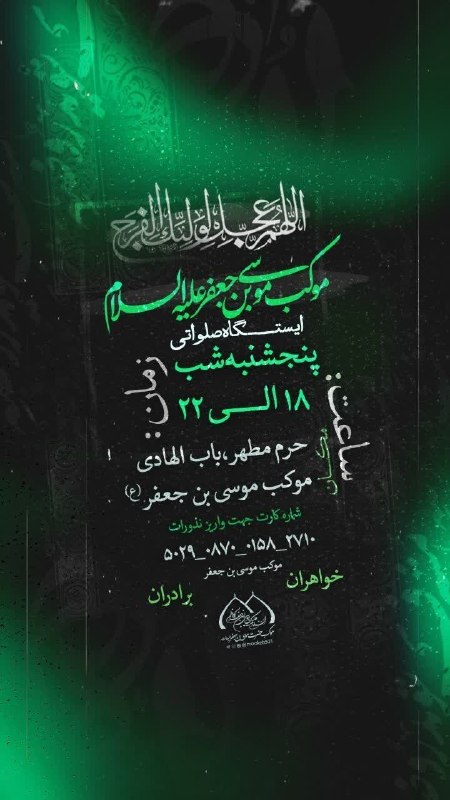 اللهم عجل لولیک الفرج
موکب موسی بن جعفر علیه السلام
ایستگاه صلواتی
زمان:
پنجشنبه شب
ساعت:
۱۸ الی ۲۲
مکان
حرم مطهر، باب الهادی
موکب موسی بن جعفر (ع)
شماره کارت جهت واریز نذورات
۵۰۲۹_۰۸۷۰_۰۱۵۸_۲۷۱۰
موکب موسی بن جعفر
خواهران
برادران